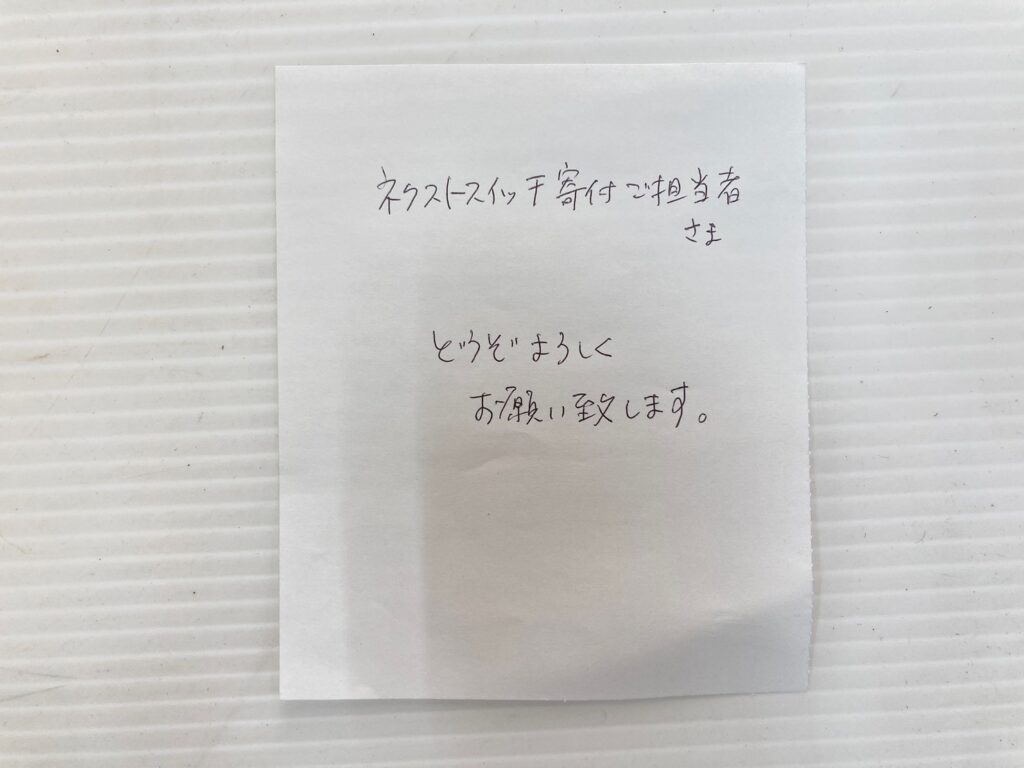 ネクストスイッチ寄付ご担当者
さま
どうぞよろしく
お願い致します。